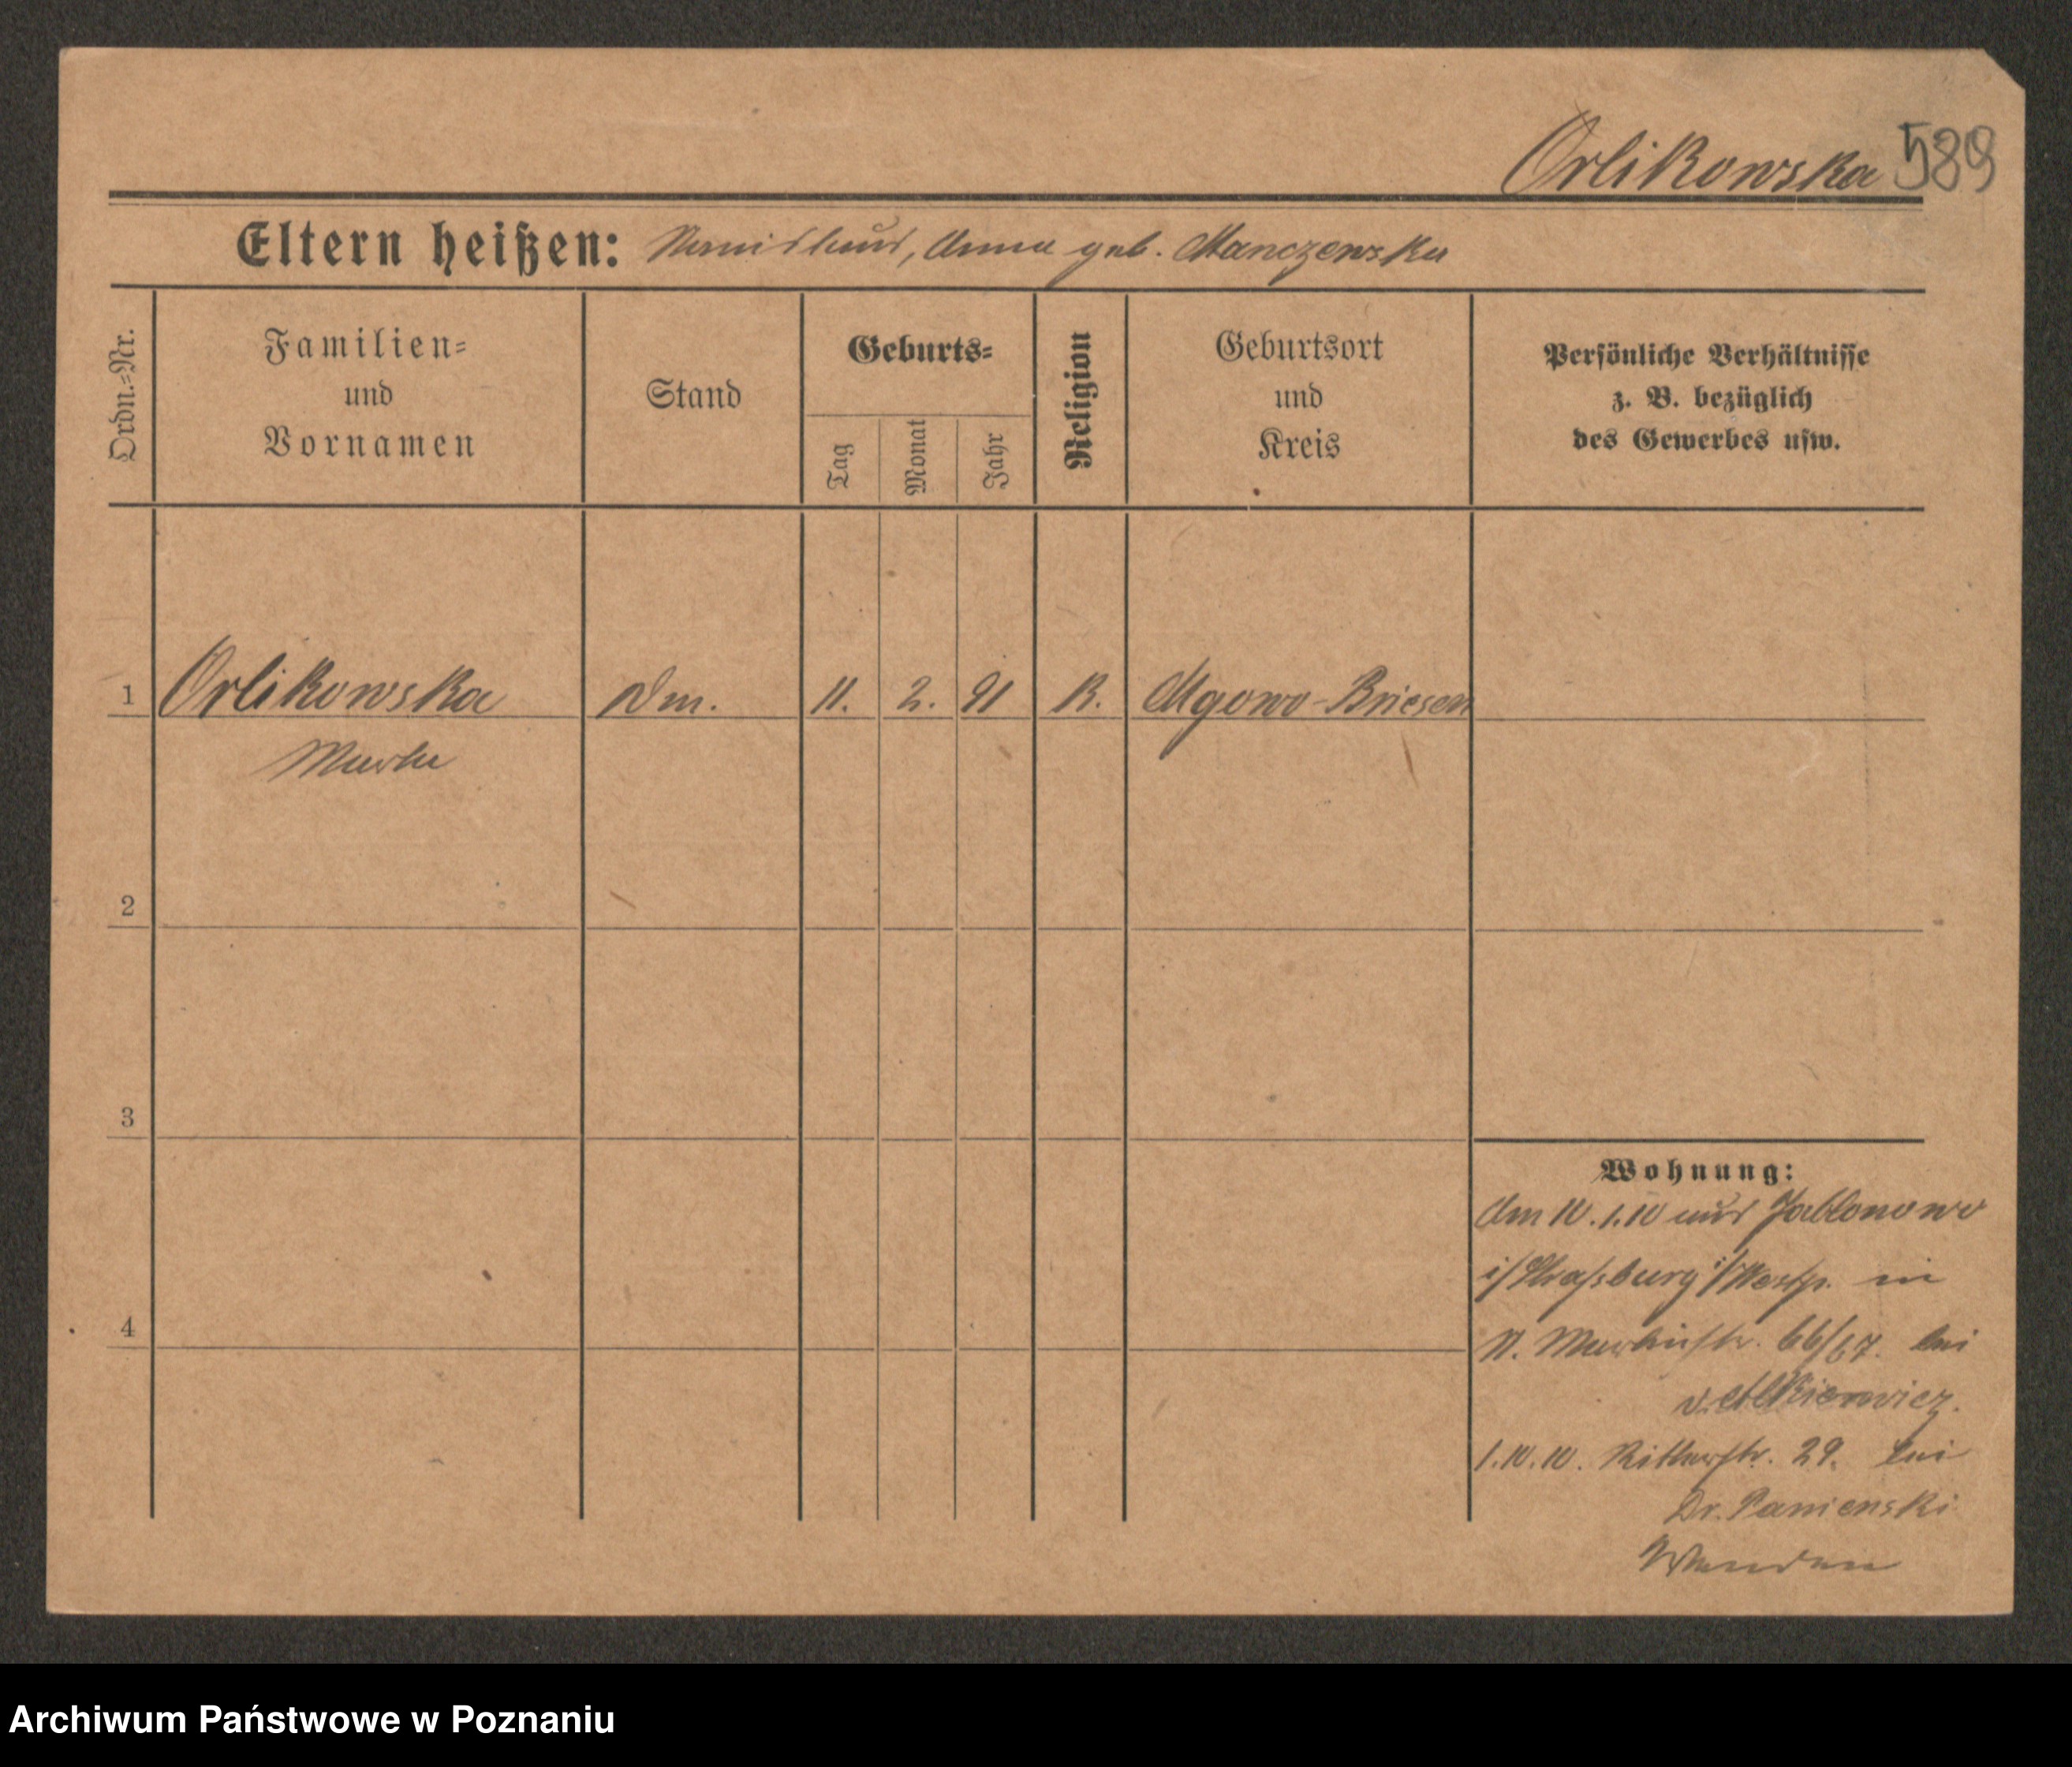 Orlikowska 589
Eltern heißen: Stanislaus, Anna geb. Manczewska
Ordn.=Nr.
Familien=
und
Vornamen
Stand
Geburts=
Tag
Monat
Jahr
Religion
Geburtsort
und
Kreis
Persönliche Verhältnisse
z. B. bezüglich
des Gewerbes usw.
1 Orlikowska 11. 2. 91 K. Mgowo-Briesen
2
3
4
Wohnung:
Am 10.1.10 aus Jablonowo
i/Straßburg i/Westp. in
St. Martinstr. 66/67. bei
1.10.10. Ritterstr. 29. bei
Dr. Panienski
Archiwum Państwowe w Poznaniu